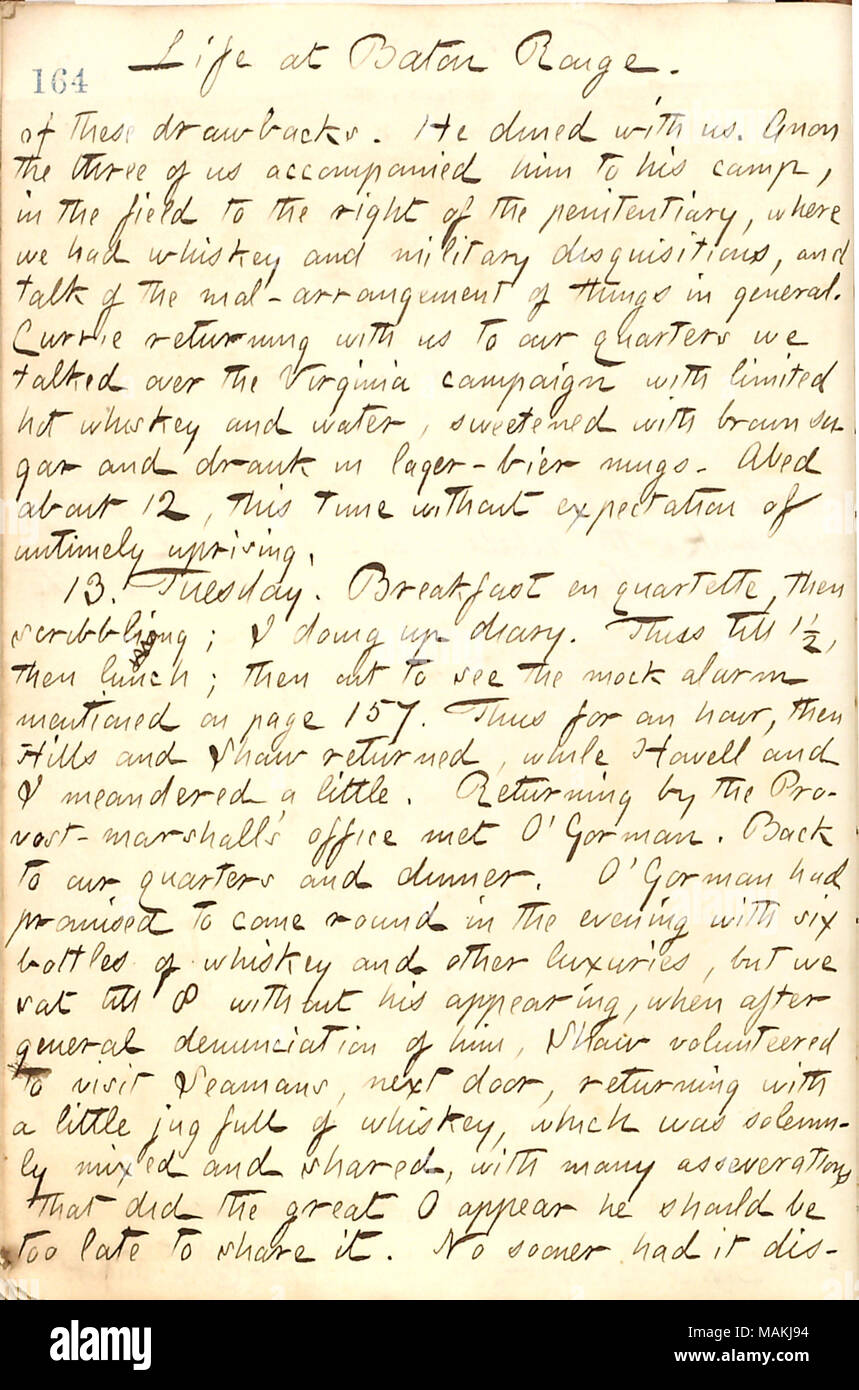 Life at Baton Rouge.
164
of these drawbacks. He dined with us. Anon
the three of us accompanied him to his camp,
in the field to the right of the penitentiary, where
we had whiskey and military disquisitions, and
talk of the mal-arrangement of things in general.
Currie returning with us to our quarters we
talked over the Virginia campaign with limited
hot whiskey and water, sweetened with brown su-
gar and drank in lager-bier mugs. Abed
about 12, this time without expectation of
untimely uprising.
13. Tuesday. Breakfast en quartette, then
scribbling; I doing up diary. Thus till 1½,
then lunch; then out to see the mock alarm
mentioned on page 157. Thus for an hour, then
Hills and Shaw returned, while Howell and
I meandered a little. Returning by the Pro-
vost-marshall's office met O'Gorman. Back
to our quarters and dinner. O'Gorman had
promised to come round in the evening with six
bottles of whiskey and other luxuries, but we
sat till 8 without his appearing, when after
general denunciation of him, Shaw volunteered
to visit Seamans, next door, returning with
a little jug full of whiskey, which was solemn-
ly mixed and shared, with many asseverations
that did the great O appear he should be
too late to share it. No sooner had it dis-
alamy
Image ID: MAKJ94
www.alamy.com